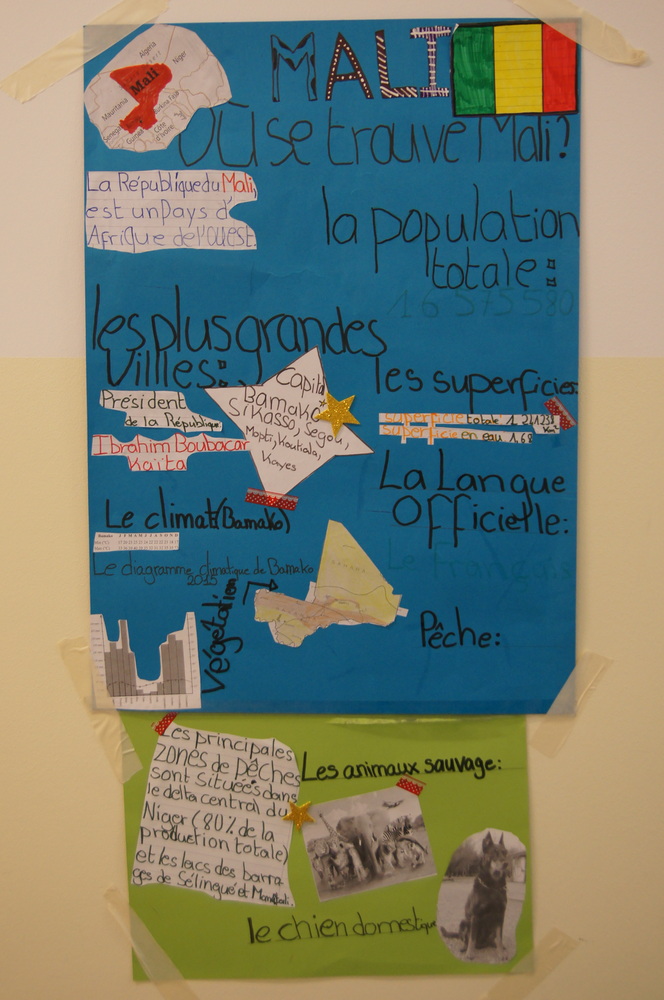 MALI
Algeria
Niger
Mali
Mauritania
Burkina Faso
Senegal
Guinea
Côte
d'Ivoire
Où se trouve Mali?
La République du Mali
est un Pays d'
Afrique de l'ouest.
la population
totale:
16 575 580
les plus grandes
villles:
Capital
Bamako
Sikasso, Ségou,
Mopti, Koutiala,
Kayes
les superficies:
superficie totale 1
superficie en eau 1.6%
Président
de la République:
Ibrahim Boubacar
Kaïta
La Langue
Officielle:
Le français
Le climat (Bamako)
Le diagramme climatique de Bamako
2015
végétation
Pêche:
Les principales
zones de pêches
sont situées dans
le delta central du
Niger (80% de la
production totale)
et les lacs des barra-
ges de Sélingué et
Les animaux sauvage:
le chien domestique